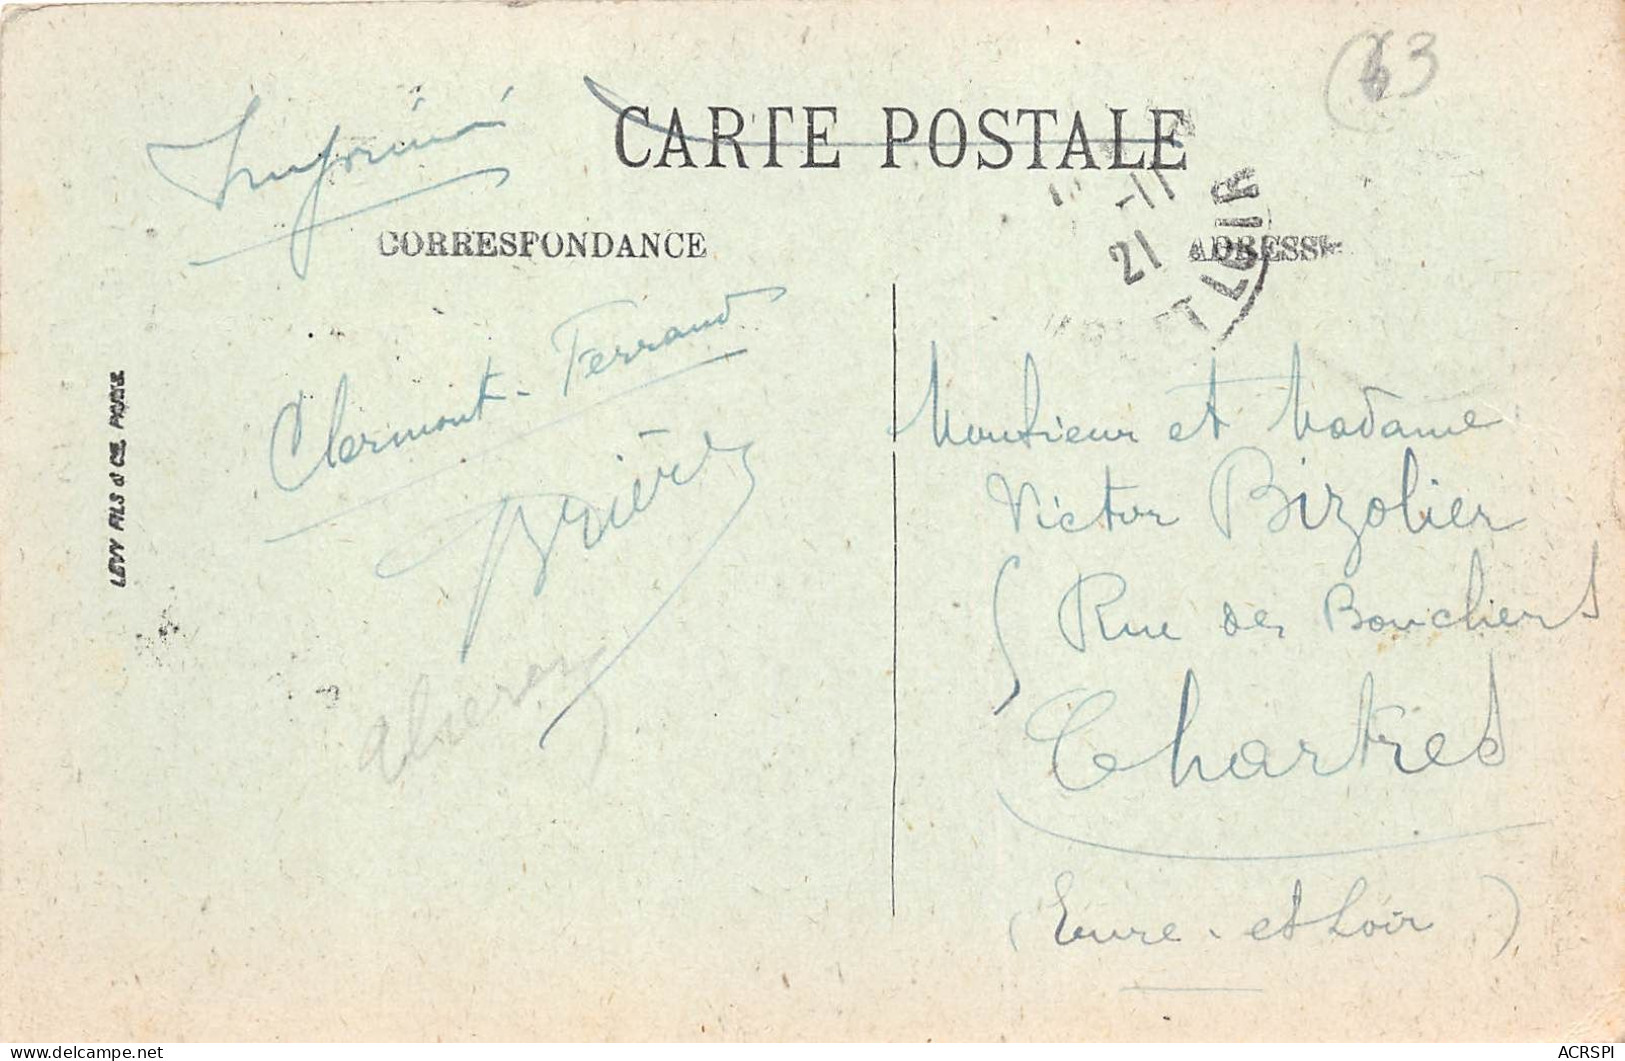 63
CARTE POSTALE
Imprimé
CORRESPONDANCE
ADRESSE
21 -11
ET LOIR
Clermont-Ferrand
Brière
LEVY FILS & CIE, PARIS.
Monsieur et Madame
Victor Bizolier
5 Rue des Bouchers
Chartres
(Eure-et-Loir)
delcampe.net
ACRSPI